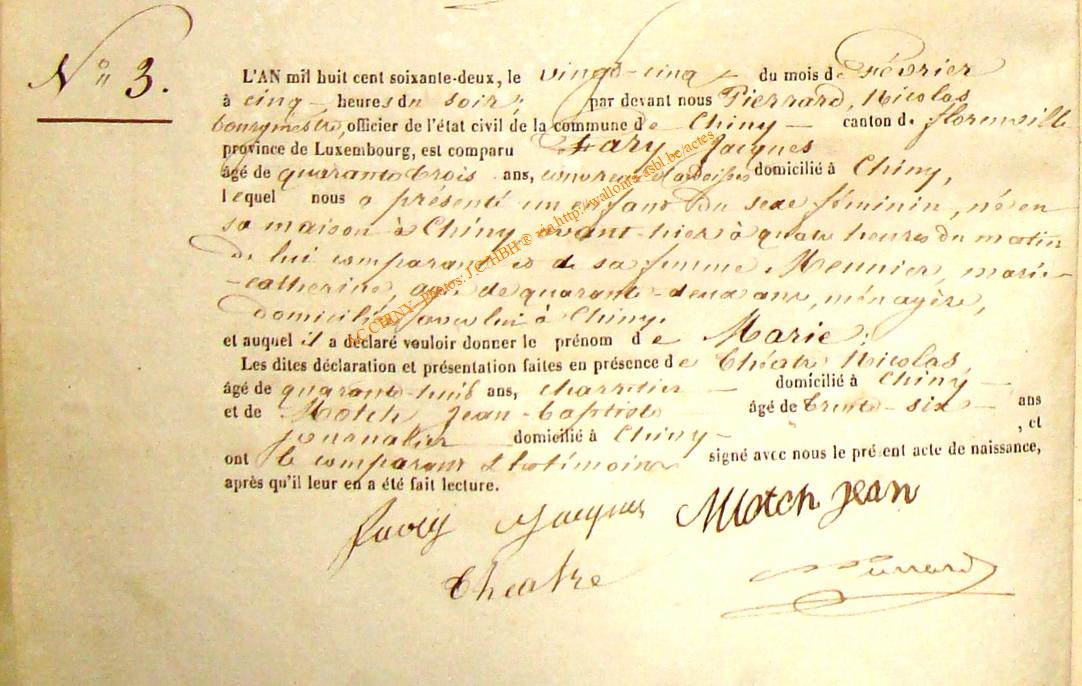 N° 3.
L'AN mil huit cent soixante-deux, le vingt-cinq du mois de février
à cinq heures du soir, par devant nous Pierrard, Nicolas
bourgmestre, officier de l'état civil de la commune de Chiny canton de florenville
province de Luxembourg, est comparu Jacques
âgé de quarante trois ans, couvreur d'ardoises domicilié à Chiny,
lequel nous a présenté un enfant du sexe féminin, né en
sa maison à Chiny avant-hier à quatre heures du matin
de lui comparant et de sa femme Meunier, marie-
-catherine, âgée de quarante-deux ans, ménagère,
domiciliée avec lui à Chiny.
et auquel il a déclaré vouloir donner le prénom de Marie;
Les dites déclaration et présentation faites en présence de Théatre Nicolas,
âgé de quarante-huit ans, charretier domicilié à Chiny
et de Motch Jean-Baptiste âgé de trente-six ans
journalier domicilié à Chiny , et
ont le comparant & les témoins signé avec nous le présent acte de naissance,
après qu'il leur en a été fait lecture.
Jacques Motch Jean
Théatre Pierrard
AC CHINY - Photos: J.C. HBH ® via http://wallonia-asbl.be/actes